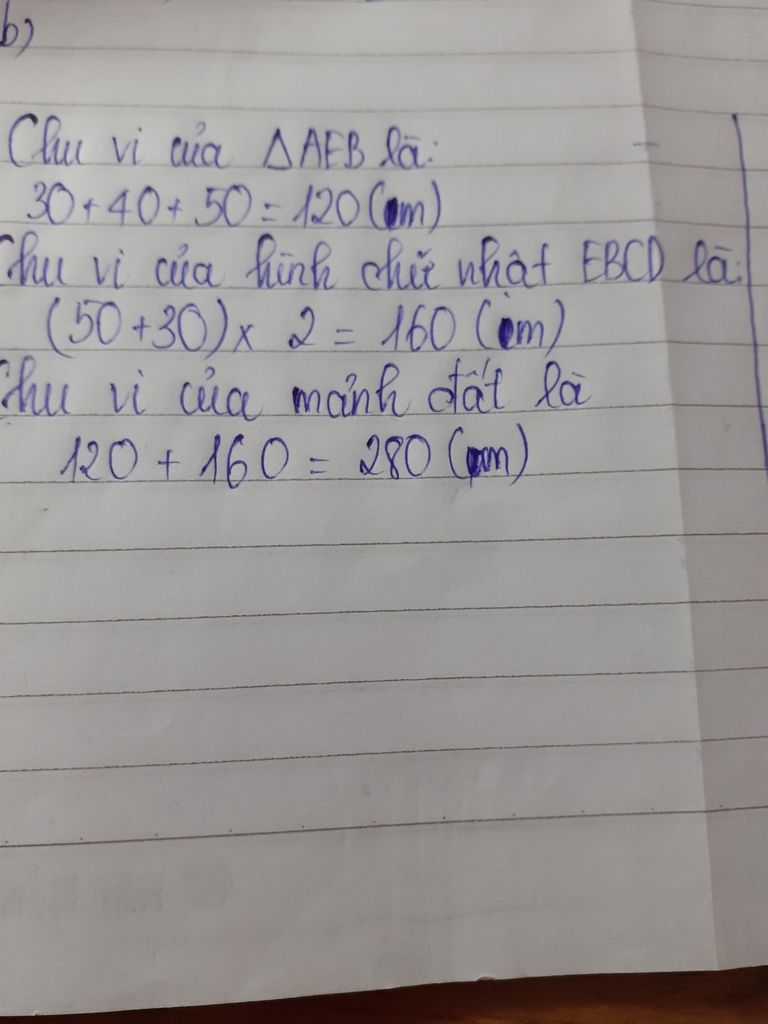 b)
Chu vi của ΔAEB là:
30+40+50=120(m)
Chu vi của hình chữ nhật EBCD là:
(50+30)x 2 = 160 (m)
Chu vi của mảnh đất là
120 + 160 = 280 (m)